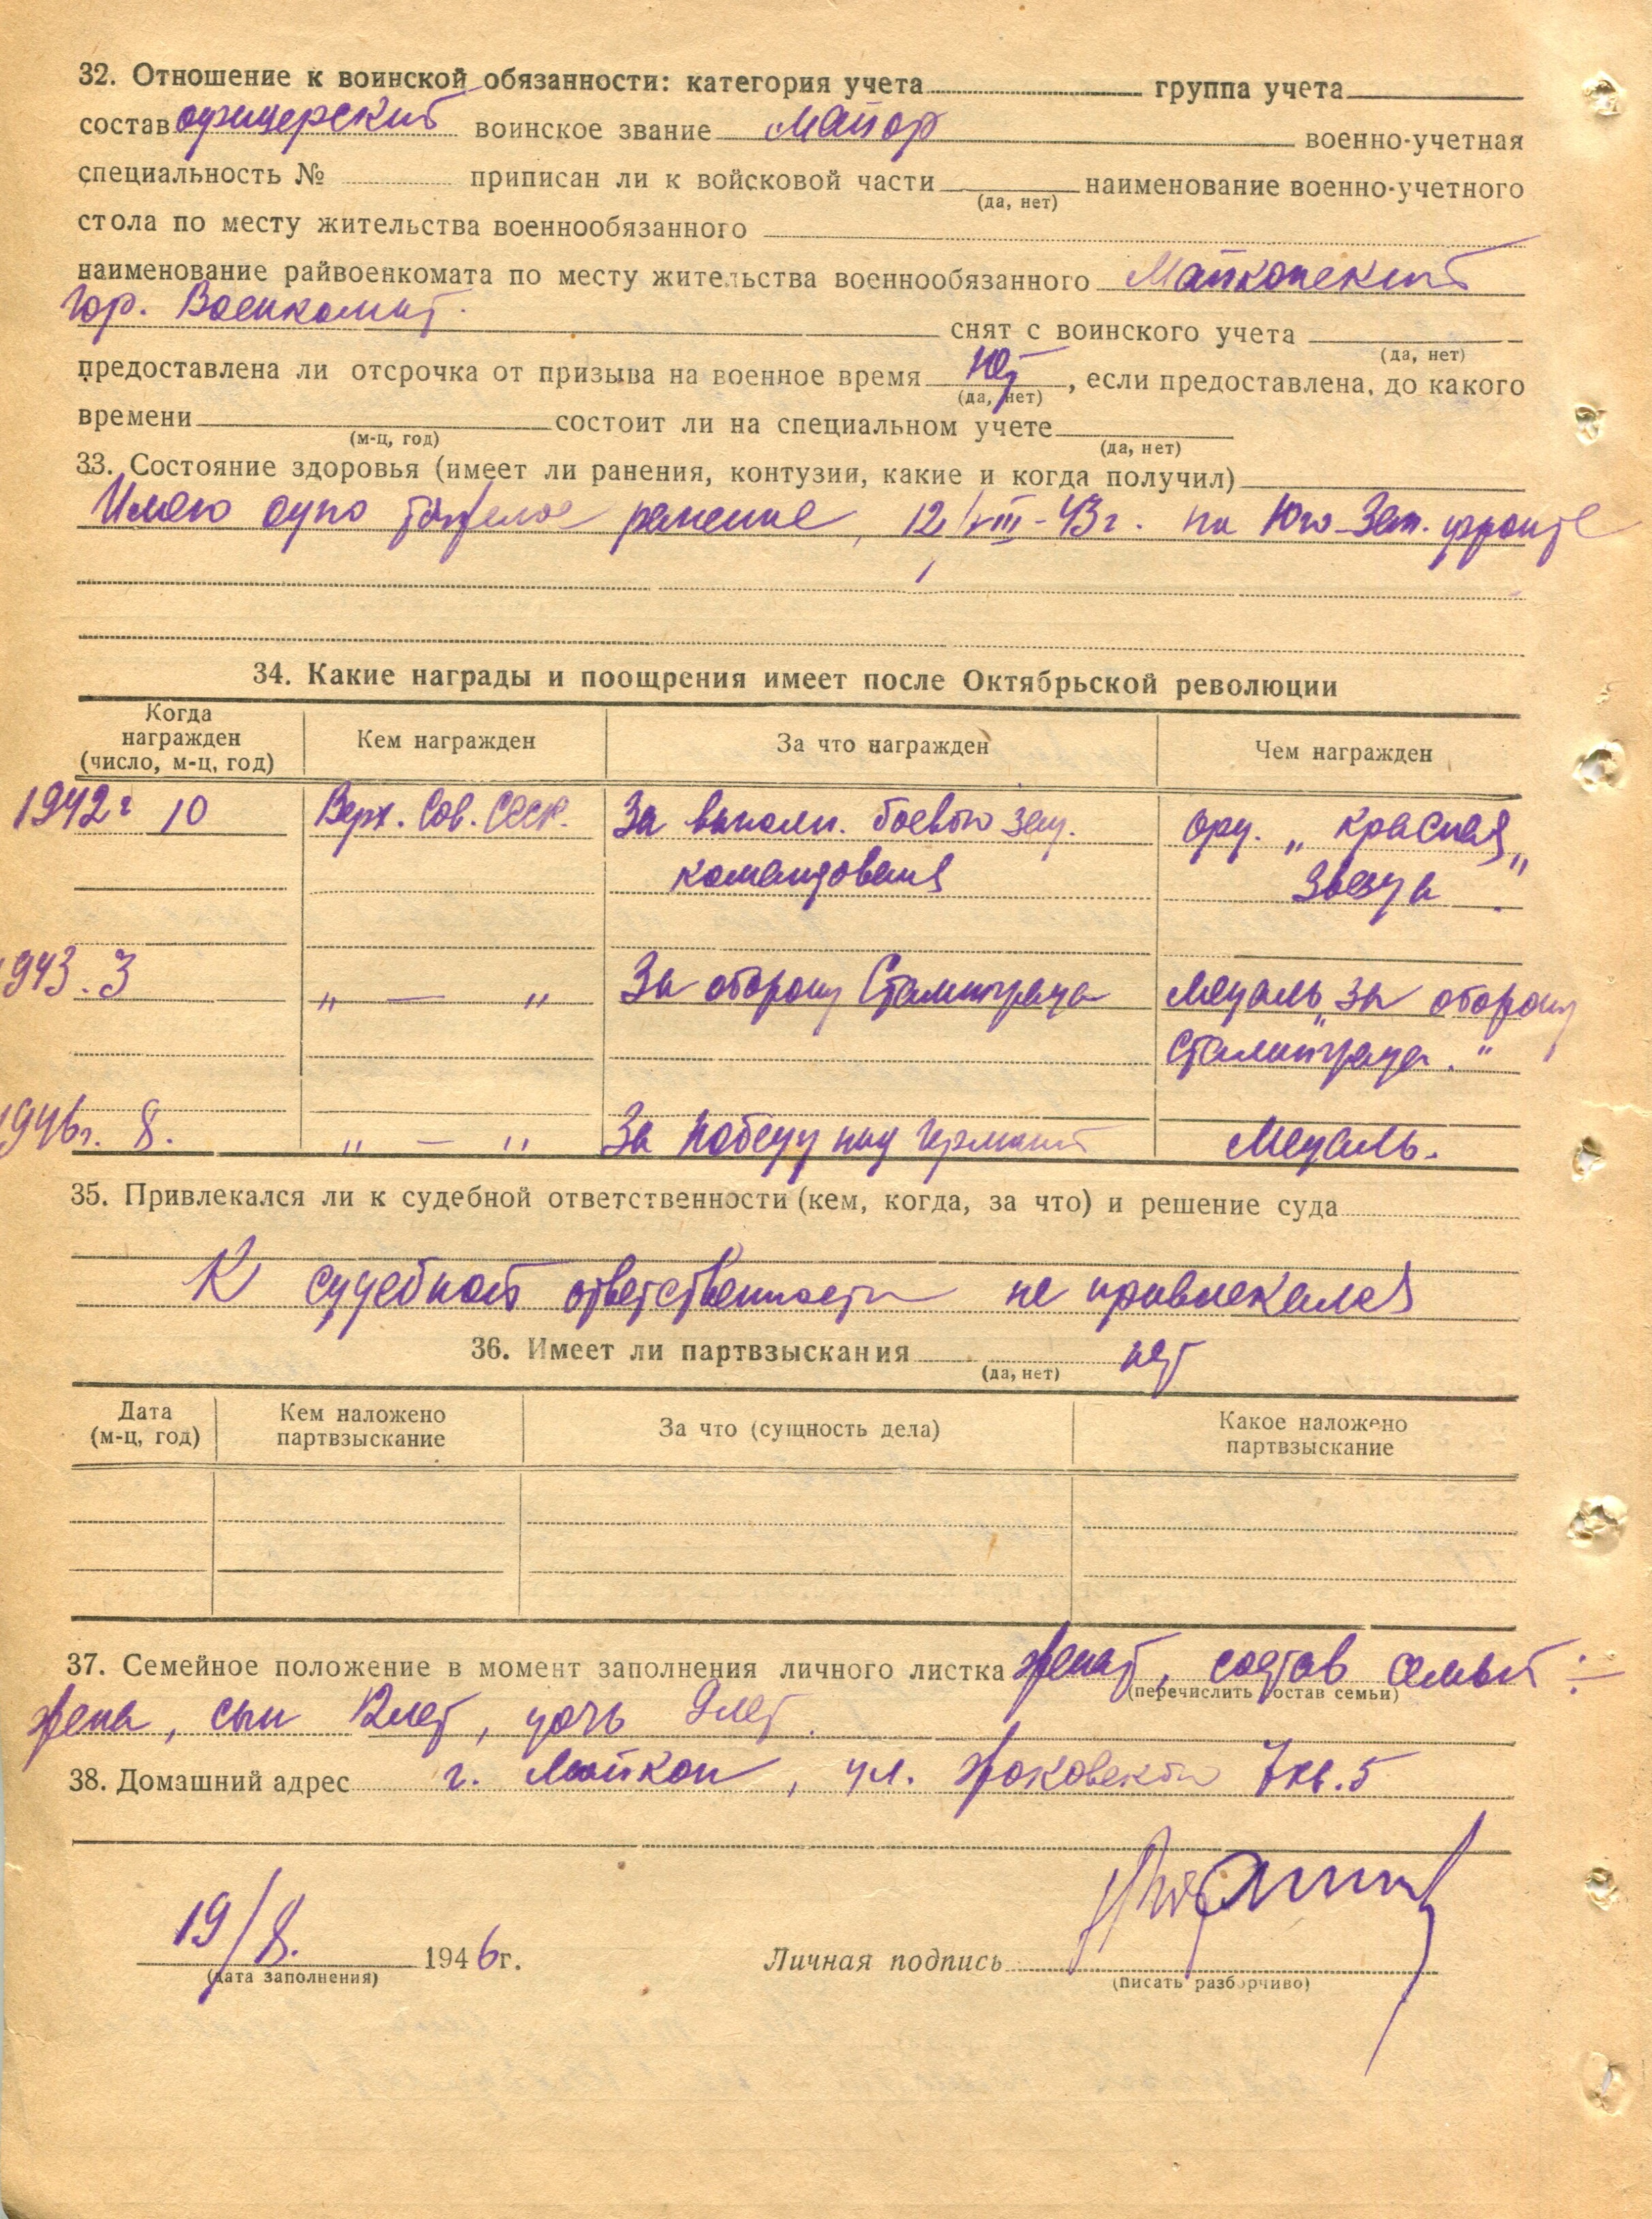 32. Отношение к воинской обязанности: категория учета группа учета
состав офицерский воинское звание майор военно-учетная
специальность № приписан ли к войсковой части наименование военно-учетного
(да, нет)
стола по месту жительства военнообязанного
наименование райвоенкомата по месту жительства военнообязанного Майкопский
Гор. Военкомат.
снят с воинского учета
(да, нет)
предоставлена ли отсрочка от призыва на военное время нет, если предоставлена, до какого
(да, нет)
времени состоит ли на специальном учете
(м-ц, год) (да, нет)
33. Состояние здоровья (имеет ли ранения, контузии, какие и когда получил)
Имею одно тяжелое ранение, 12/VIII-43г. на Юго-Зап. фронте
34. Какие награды и поощрения имеет после Октябрьской революции
Когда награжден (число, м-ц, год) Кем награжден За что награжден Чем награжден
1942г 10 Верх. Сов. СССР. За выполн. боевого зад. орд. „Красная
командования Звезда“.
1943. 3 „ — „ За оборону Сталинграда Медаль „За оборону
Сталинграда.“
1946г. 8. „ — „ За победу над Германией Медаль.
35. Привлекался ли к судебной ответственности (кем, когда, за что) и решение суда
К судебной ответственности не привлекался
36. Имеет ли партвзыскания нет
(да, нет)
Дата (м-ц, год) Кем наложено партвзыскание За что (сущность дела) Какое наложено партвзыскание
37. Семейное положение в момент заполнения личного листка женат, состав семьи:
(перечислить состав семьи)
жена, сын 12 лет, дочь 9 лет.
38. Домашний адрес г. Майкоп, ул. 7 кв. 5
19/8. 1946г. Личная подпись
(дата заполнения) (писать разборчиво)